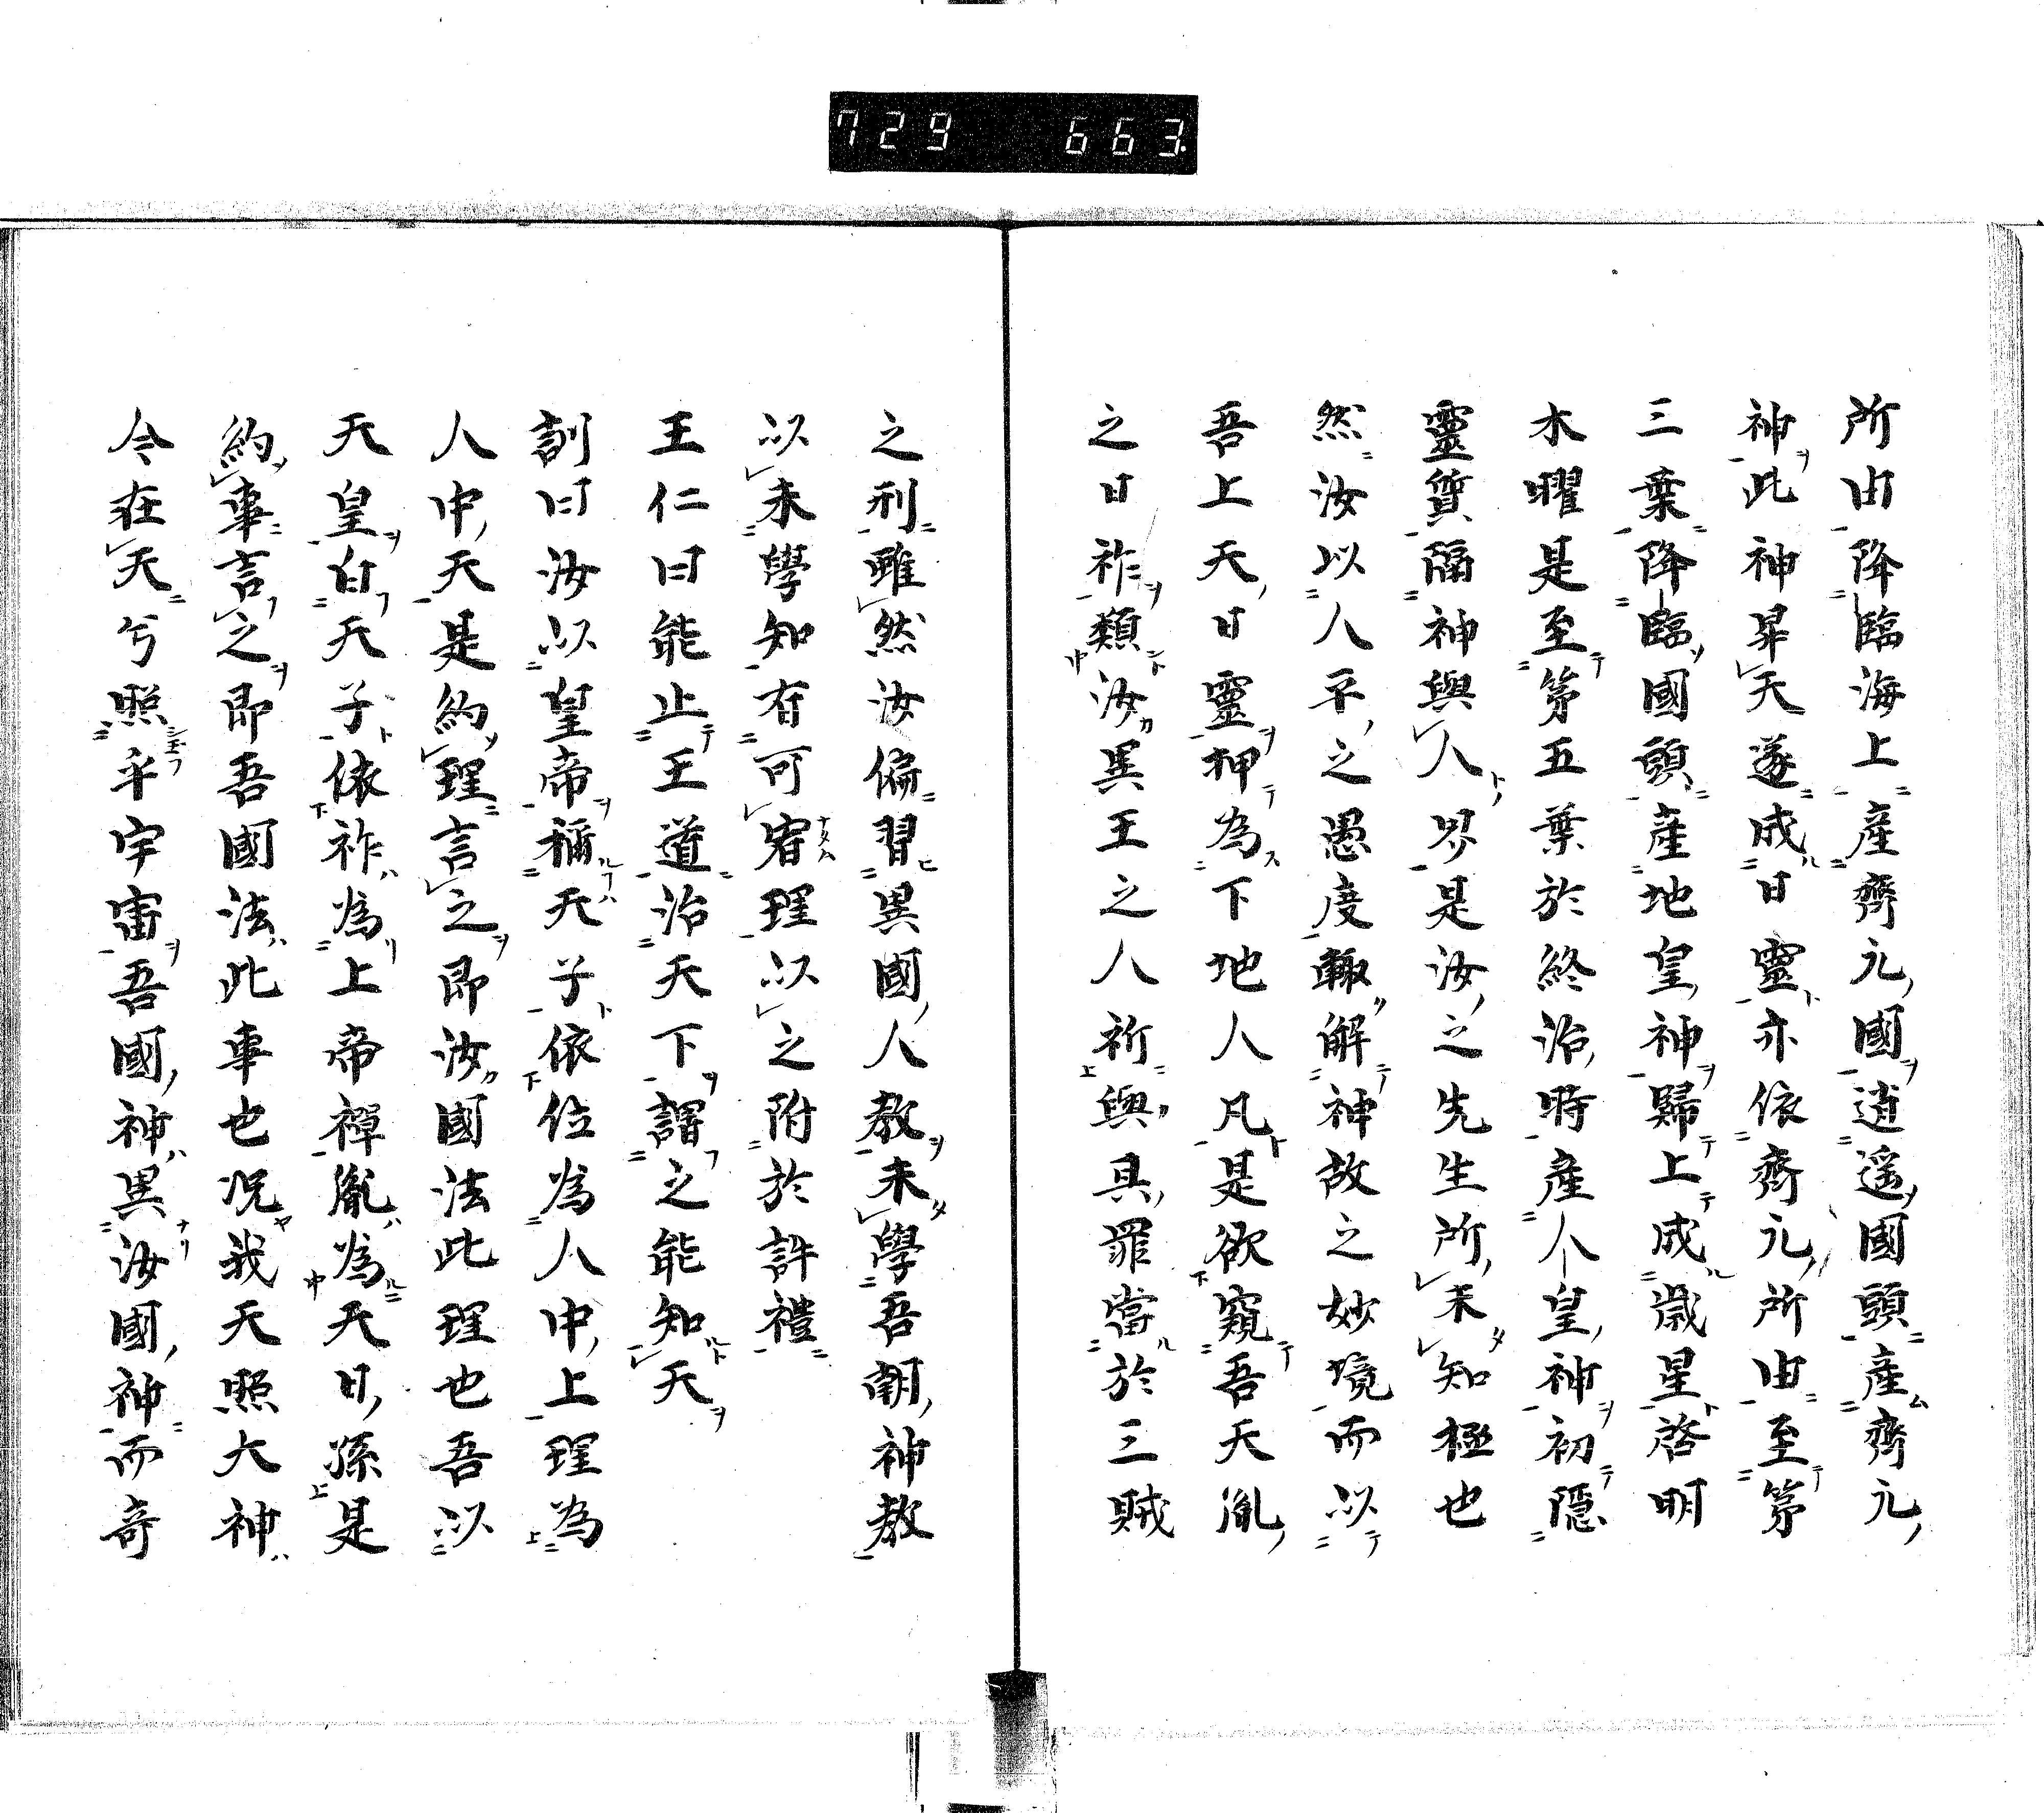 729 663
所由降臨海上産齊元國逍遥國頭産齊元
神此神昇天遂成日靈亦依齊元所由至第
三葉降臨國頭産地皇神歸上成歳星啓明
木曜是至第五葉於終治時産人皇神初隱
靈質隔神與人界是汝之先生所未知極也
然汝以人平之愚度輙解神故之妙境而以
吾上天日靈押為下地人凡是欲窺吾天胤
之日祚類汝異王之人祈與具罪當於三賊
之刑雖然汝偏習異國人教未學吾朝神教
以未學知有可宥理以之附於許禮
王仁曰能止王道治天下謂之能知天
訓曰汝以皇帝稱天子依位為人中上理為
人中天是約理言之即汝國法此理也吾以
天皇白天子依祚為上帝禪胤為天日孫是
約事言之即吾國法此事也况我天照大神
今在天兮照乎宇宙吾國神異汝國神而奇